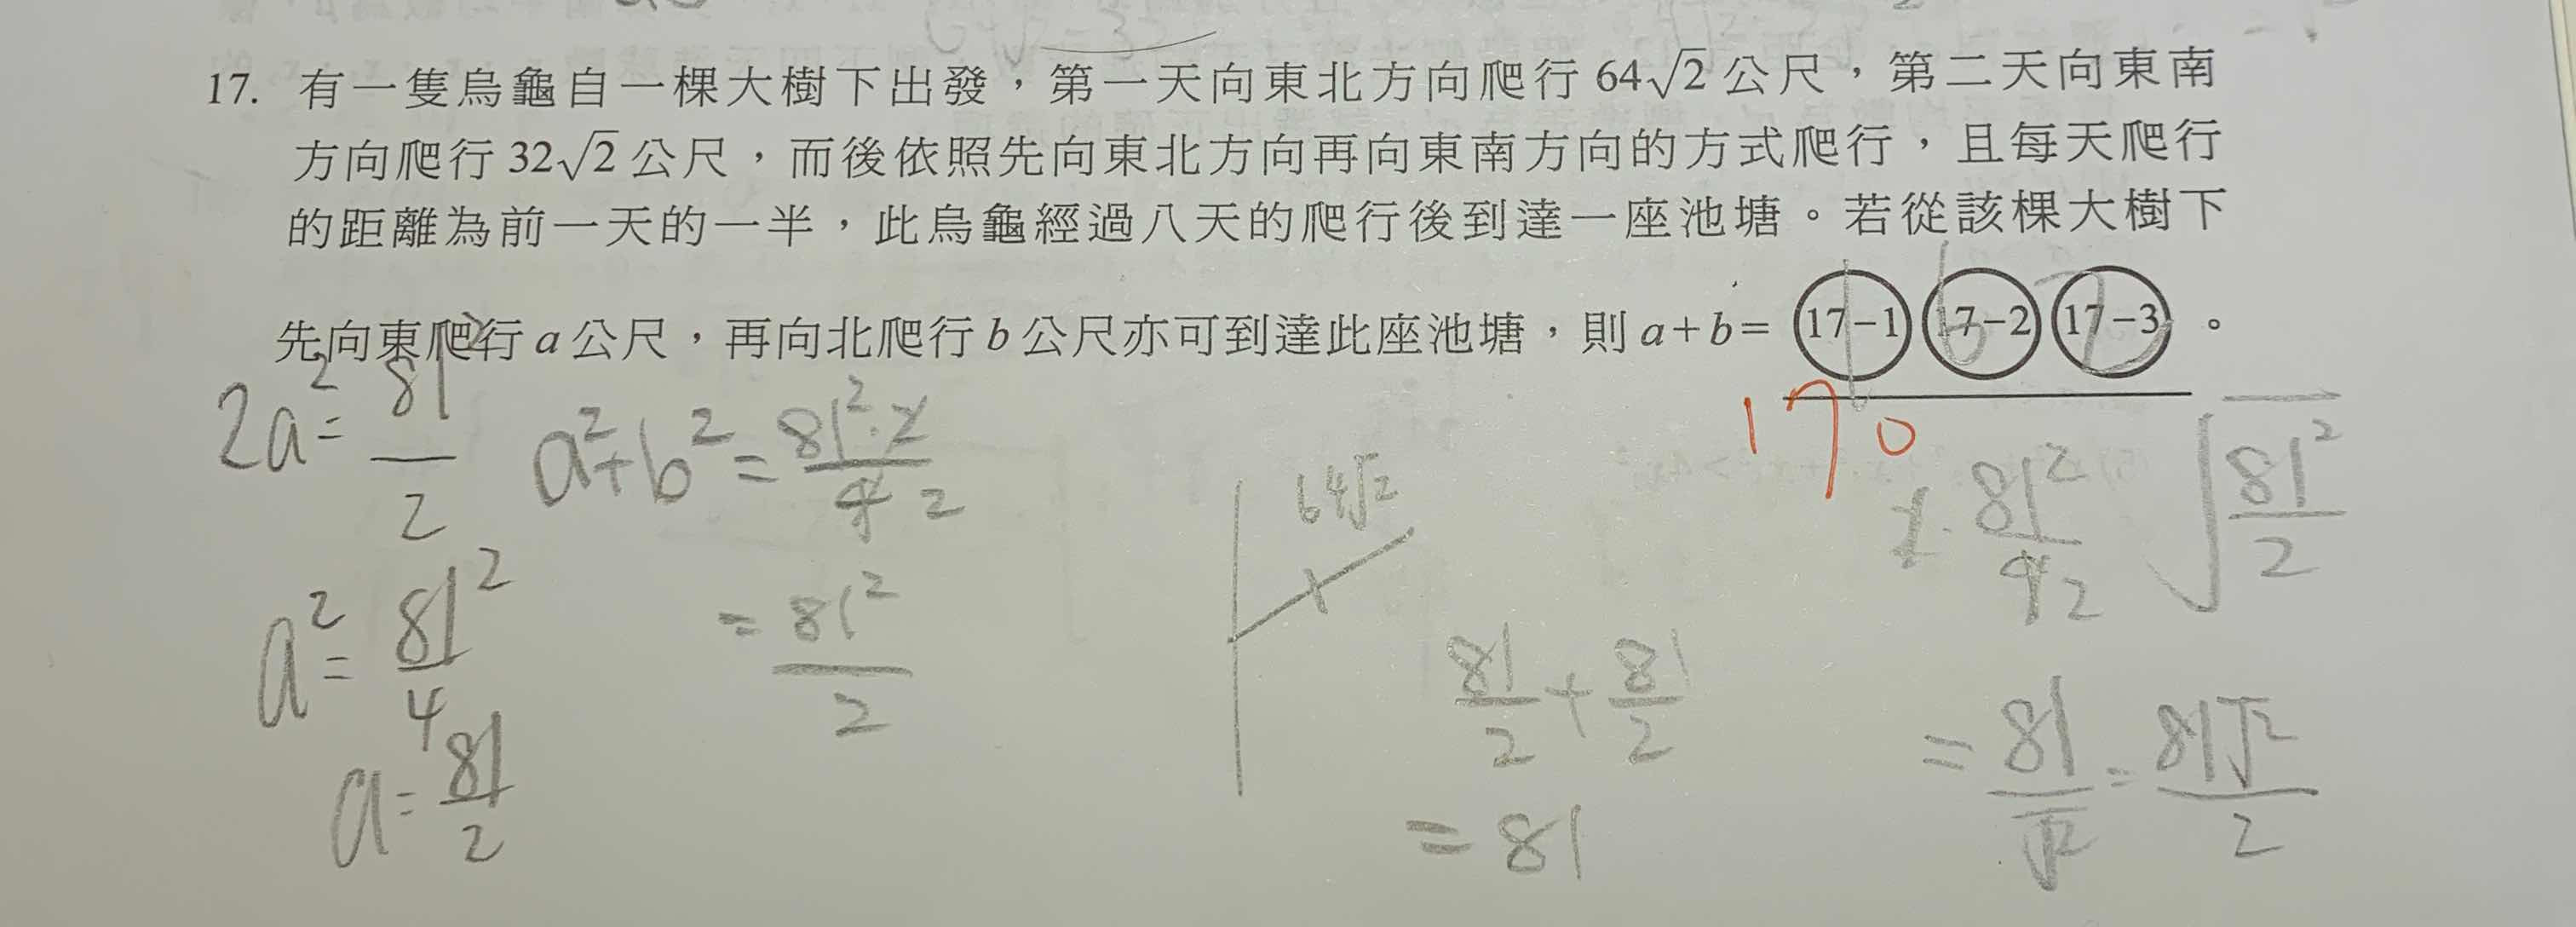 17. 有一隻烏龜自一棵大樹下出發，第一天向東北方向爬行 64√2 公尺，第二天向東南
方向爬行 32√2 公尺，而後依照先向東北方向再向東南方向的方式爬行，且每天爬行
的距離為前一天的一半，此烏龜經過八天的爬行後到達一座池塘。若從該棵大樹下
先向東爬行 a 公尺，再向北爬行 b 公尺亦可到達此座池塘，則 a+b= (17-1)(17-2)(17-3) 。
170
2a²=81²/2
a²+b²=81²·2/4 2
64√2
81²/4 2
√(81²/2)
a²=81²/4
=81²/2
81/2+81/2
=81/√2=81√2/2
a=81/2
=81